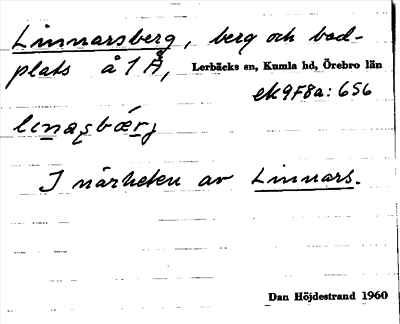 Linnarsberg, berg och bad-
plats å 1 Å, Lerbäcks sn, Kumla hd, Örebro län
ek9F8a: 656
I närheten av Linnars.
Dan Höjdestrand 1960